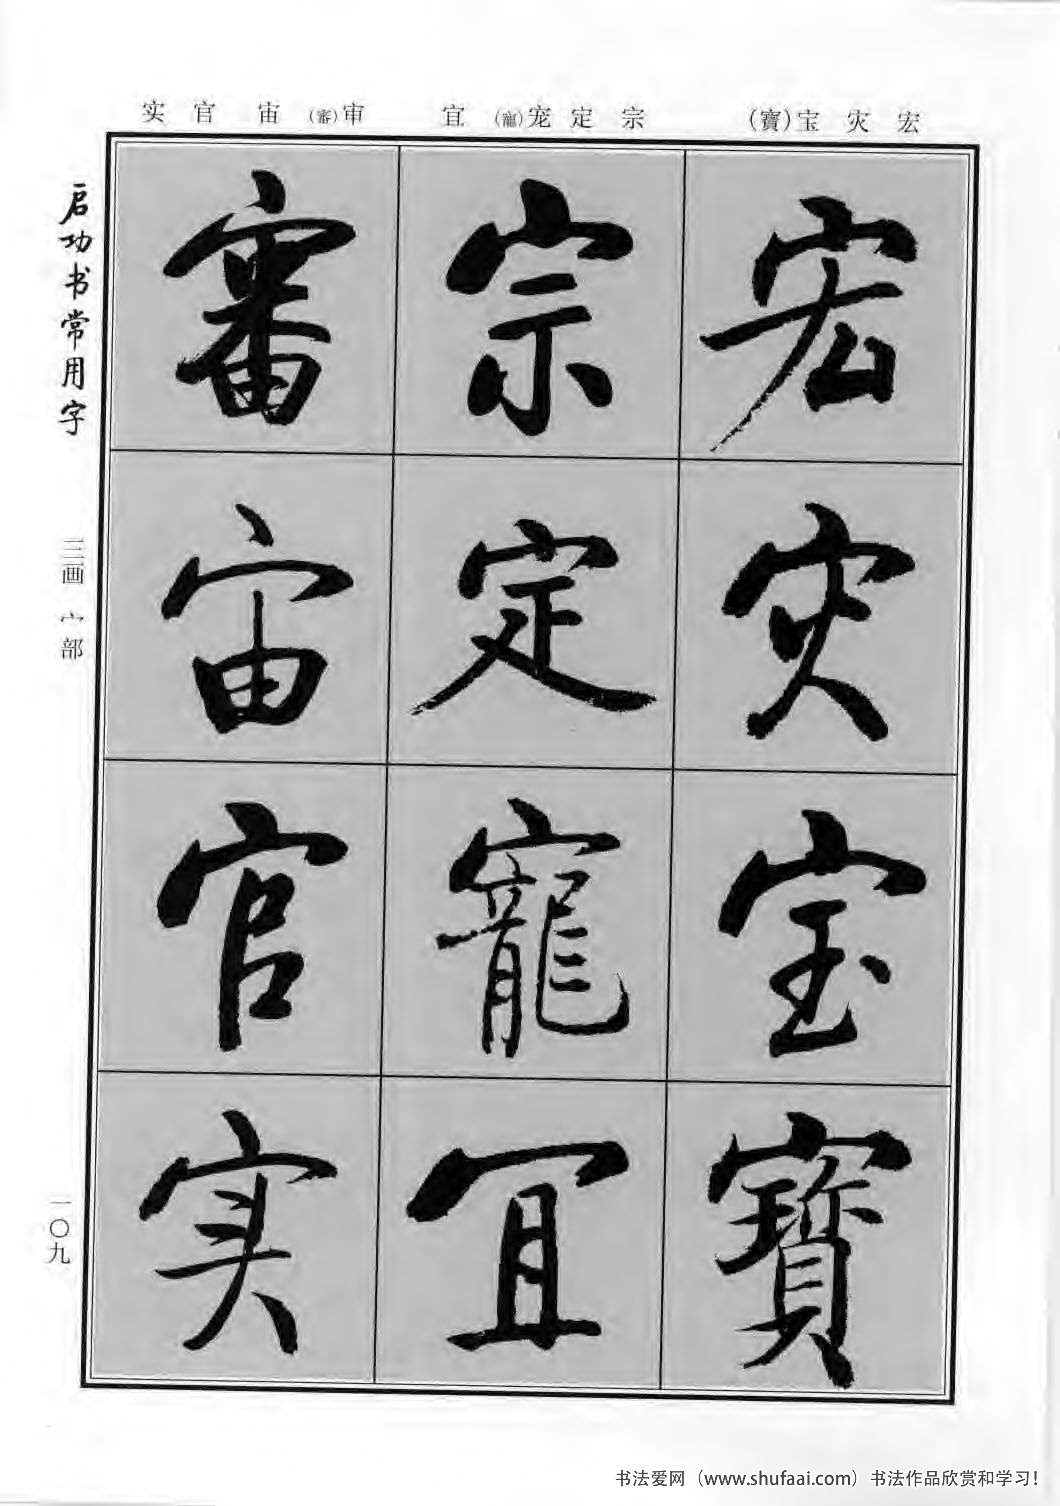 宏 灾 宝(寶)
宗 定 宠(寵) 宜
审(審) 宙 官 实
宏灾宝寶
宗定寵宜
審宙官实
启功书常用字
三画 宀部
一〇九
书法爱网（www.shufaai.com）书法作品欣赏和学习！